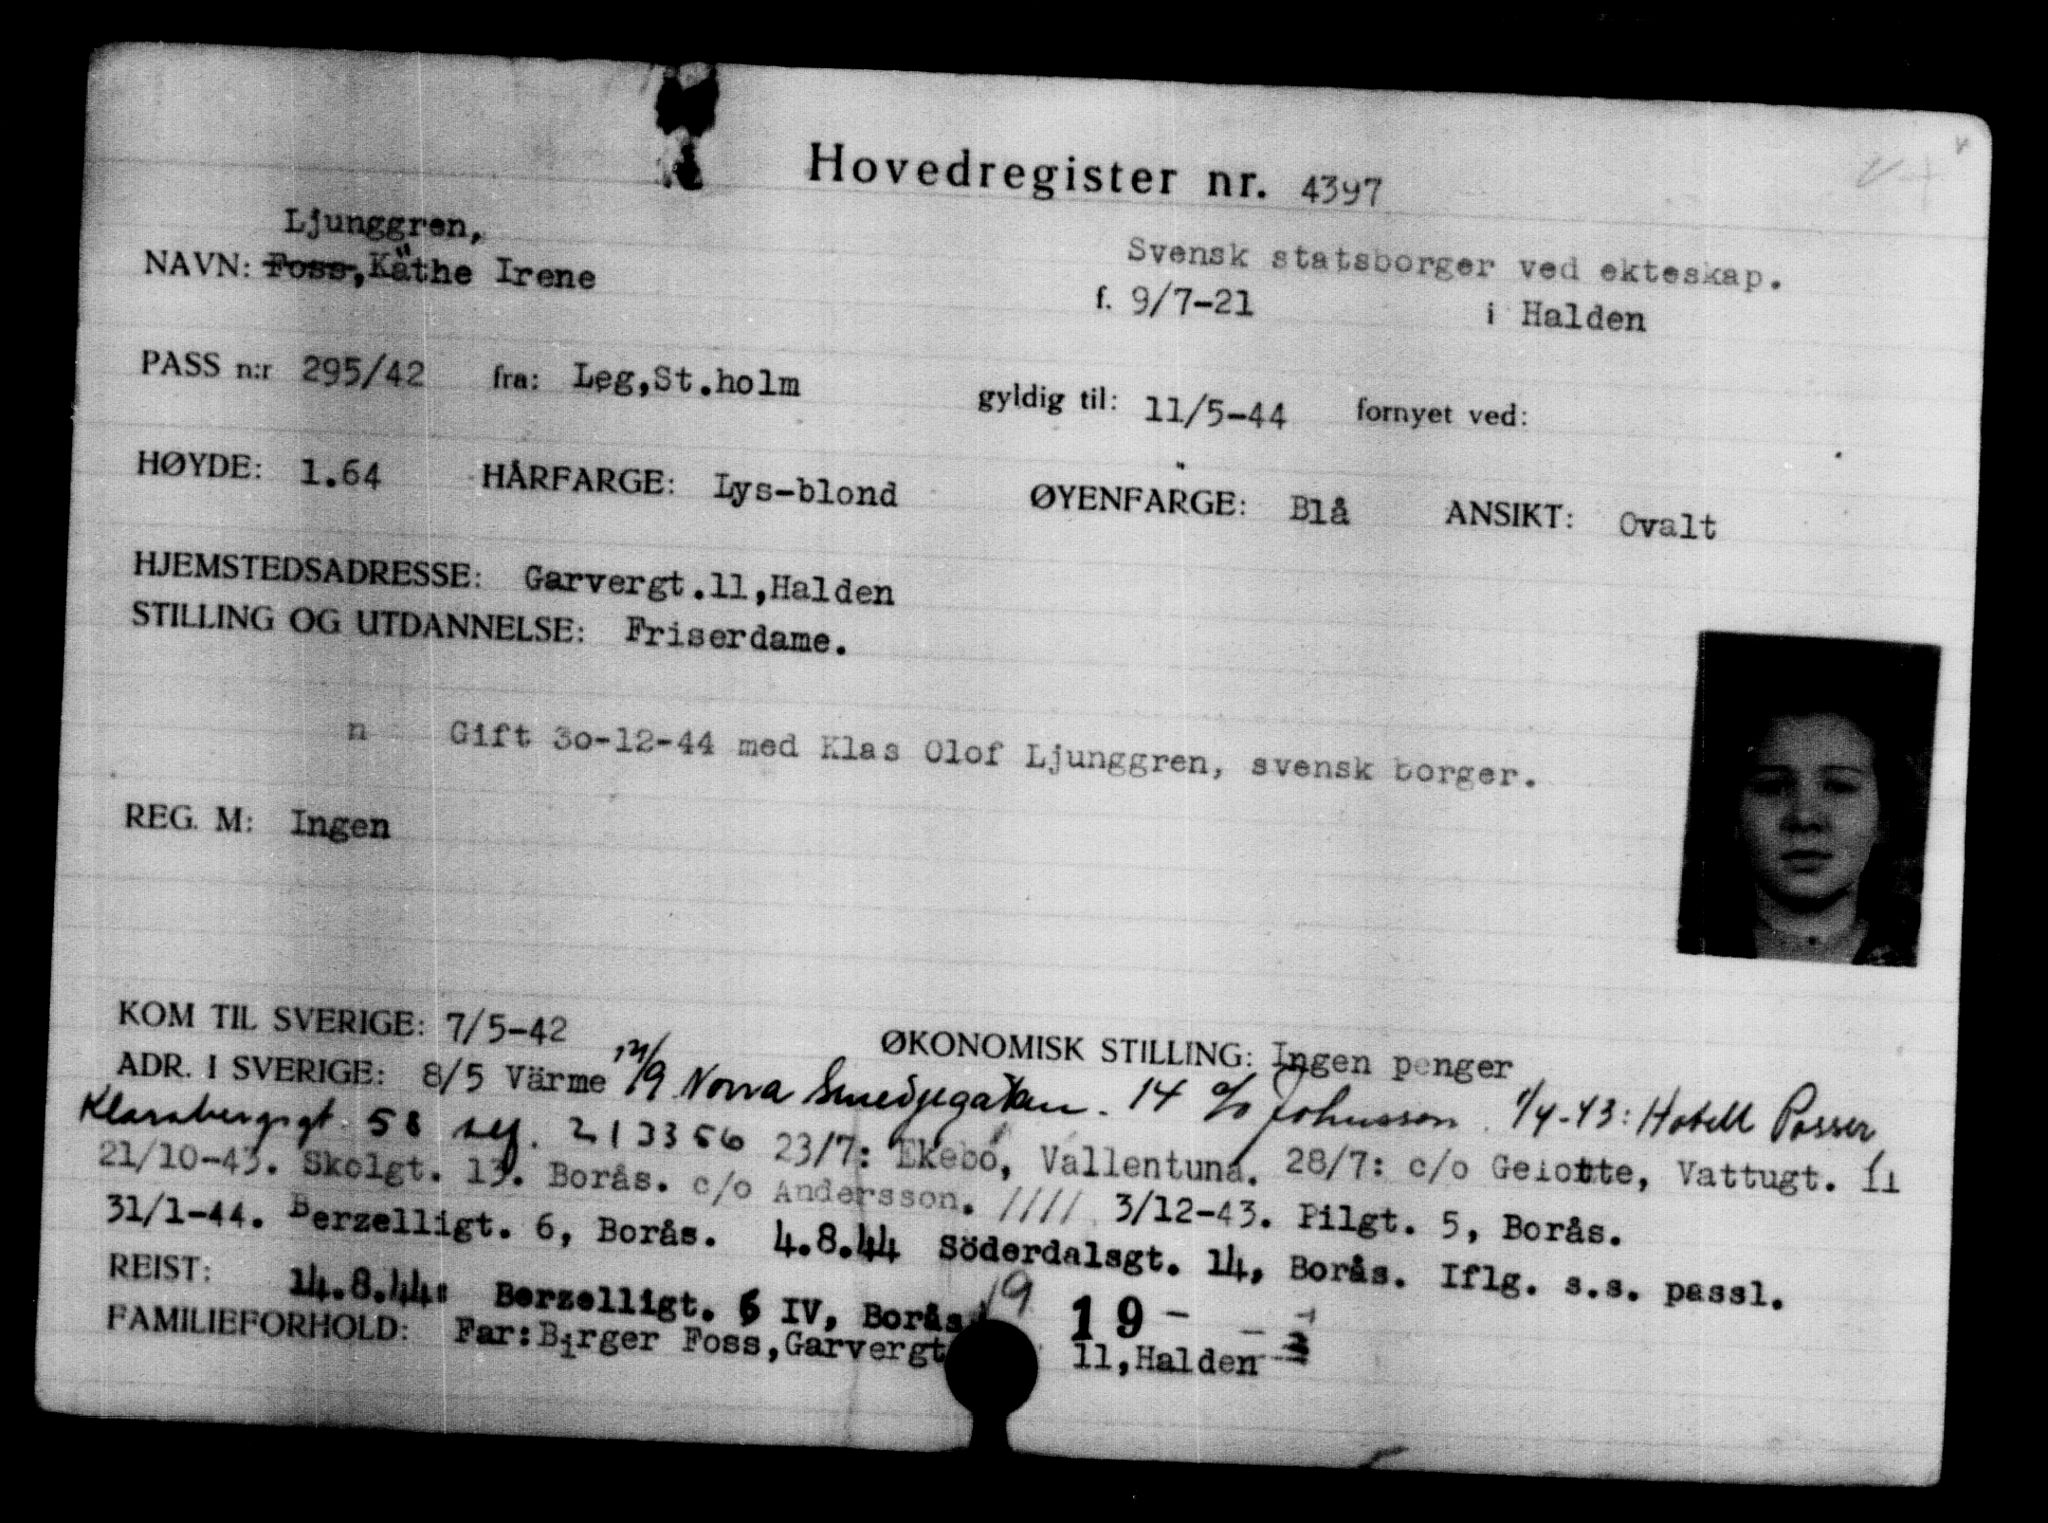 Hovedregister nr. 4397
Ljunggren,
NAVN: Foss, Käthe Irene
Svensk statsborger ved ekteskap.
f. 9/7-21 i Halden
PASS n:r 295/42 fra: Leg,St.holm gyldig til: 11/5-44 fornyet ved:
HØYDE: 1.64 HÅRFARGE: Lys-blond ØYENFARGE: Blå ANSIKT: Ovalt
HJEMSTEDSADRESSE: Garvergt.11,Halden
STILLING OG UTDANNELSE: Friserdame.
n Gift 30-12-44 med Klas Olof Ljunggren, svensk borger.
REG. M: Ingen
KOM TIL SVERIGE: 7/5-42 ØKONOMISK STILLING: Ingen penger
ADR. I SVERIGE: 8/5 Värme /9 Norra Smedjegatan. 14 c/o Johnsson. 1/4-43: Hotell
Klarabergsgt. 58 213356 23/7: Ekebo, Vallentuna. 28/7: c/o Gelotte, Vattugt. 11
21/10-43. Skolgt. 13. Borås. c/o Andersson. //// 3/12-43. Pilgt. 5, Borås.
31/1-44. Berzelligt. 6, Borås. 4.8.44 Söderdalsgt. 14, Borås. Iflg. s.s. passl.
REIST: 14.8.44: Berzelligt. 6 IV, Borås 19 19 -
FAMILIEFORHOLD: Far:Birger Foss,Garvergt 11,Halden